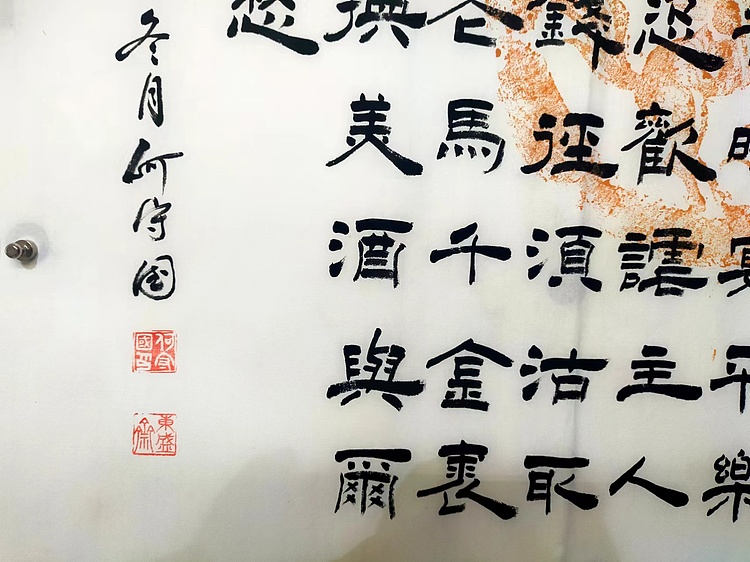 宴平樂
恣歡謔主人
錢徑須沽取
花馬千金裘
換美酒與爾
愁
冬月何守国
何守國印